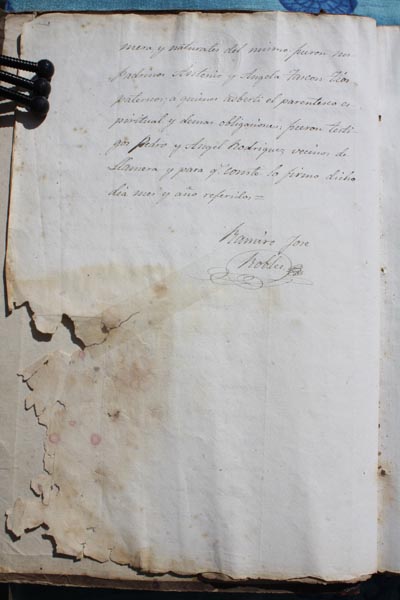 mera y naturales del mismo: fueron sus
padrinos Antonio y Angela Tascon tios
paternos, a quienes adverti el parentesco es
piritual y demas obligaciones, fueron testi
gos Pedro y Angel Rodriguez vecinos de
Llamera y para q.e conste lo firmo dicho
dia mes y año referidos =
Ramiro Jose
Robles